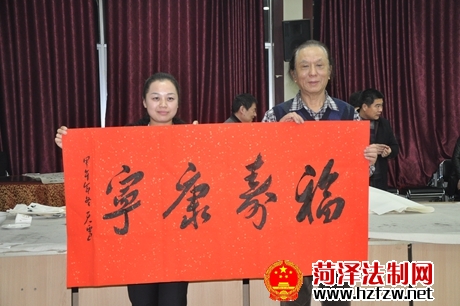 福寿康宁
甲午年冬
菏泽法制网
www.hzfzw.net